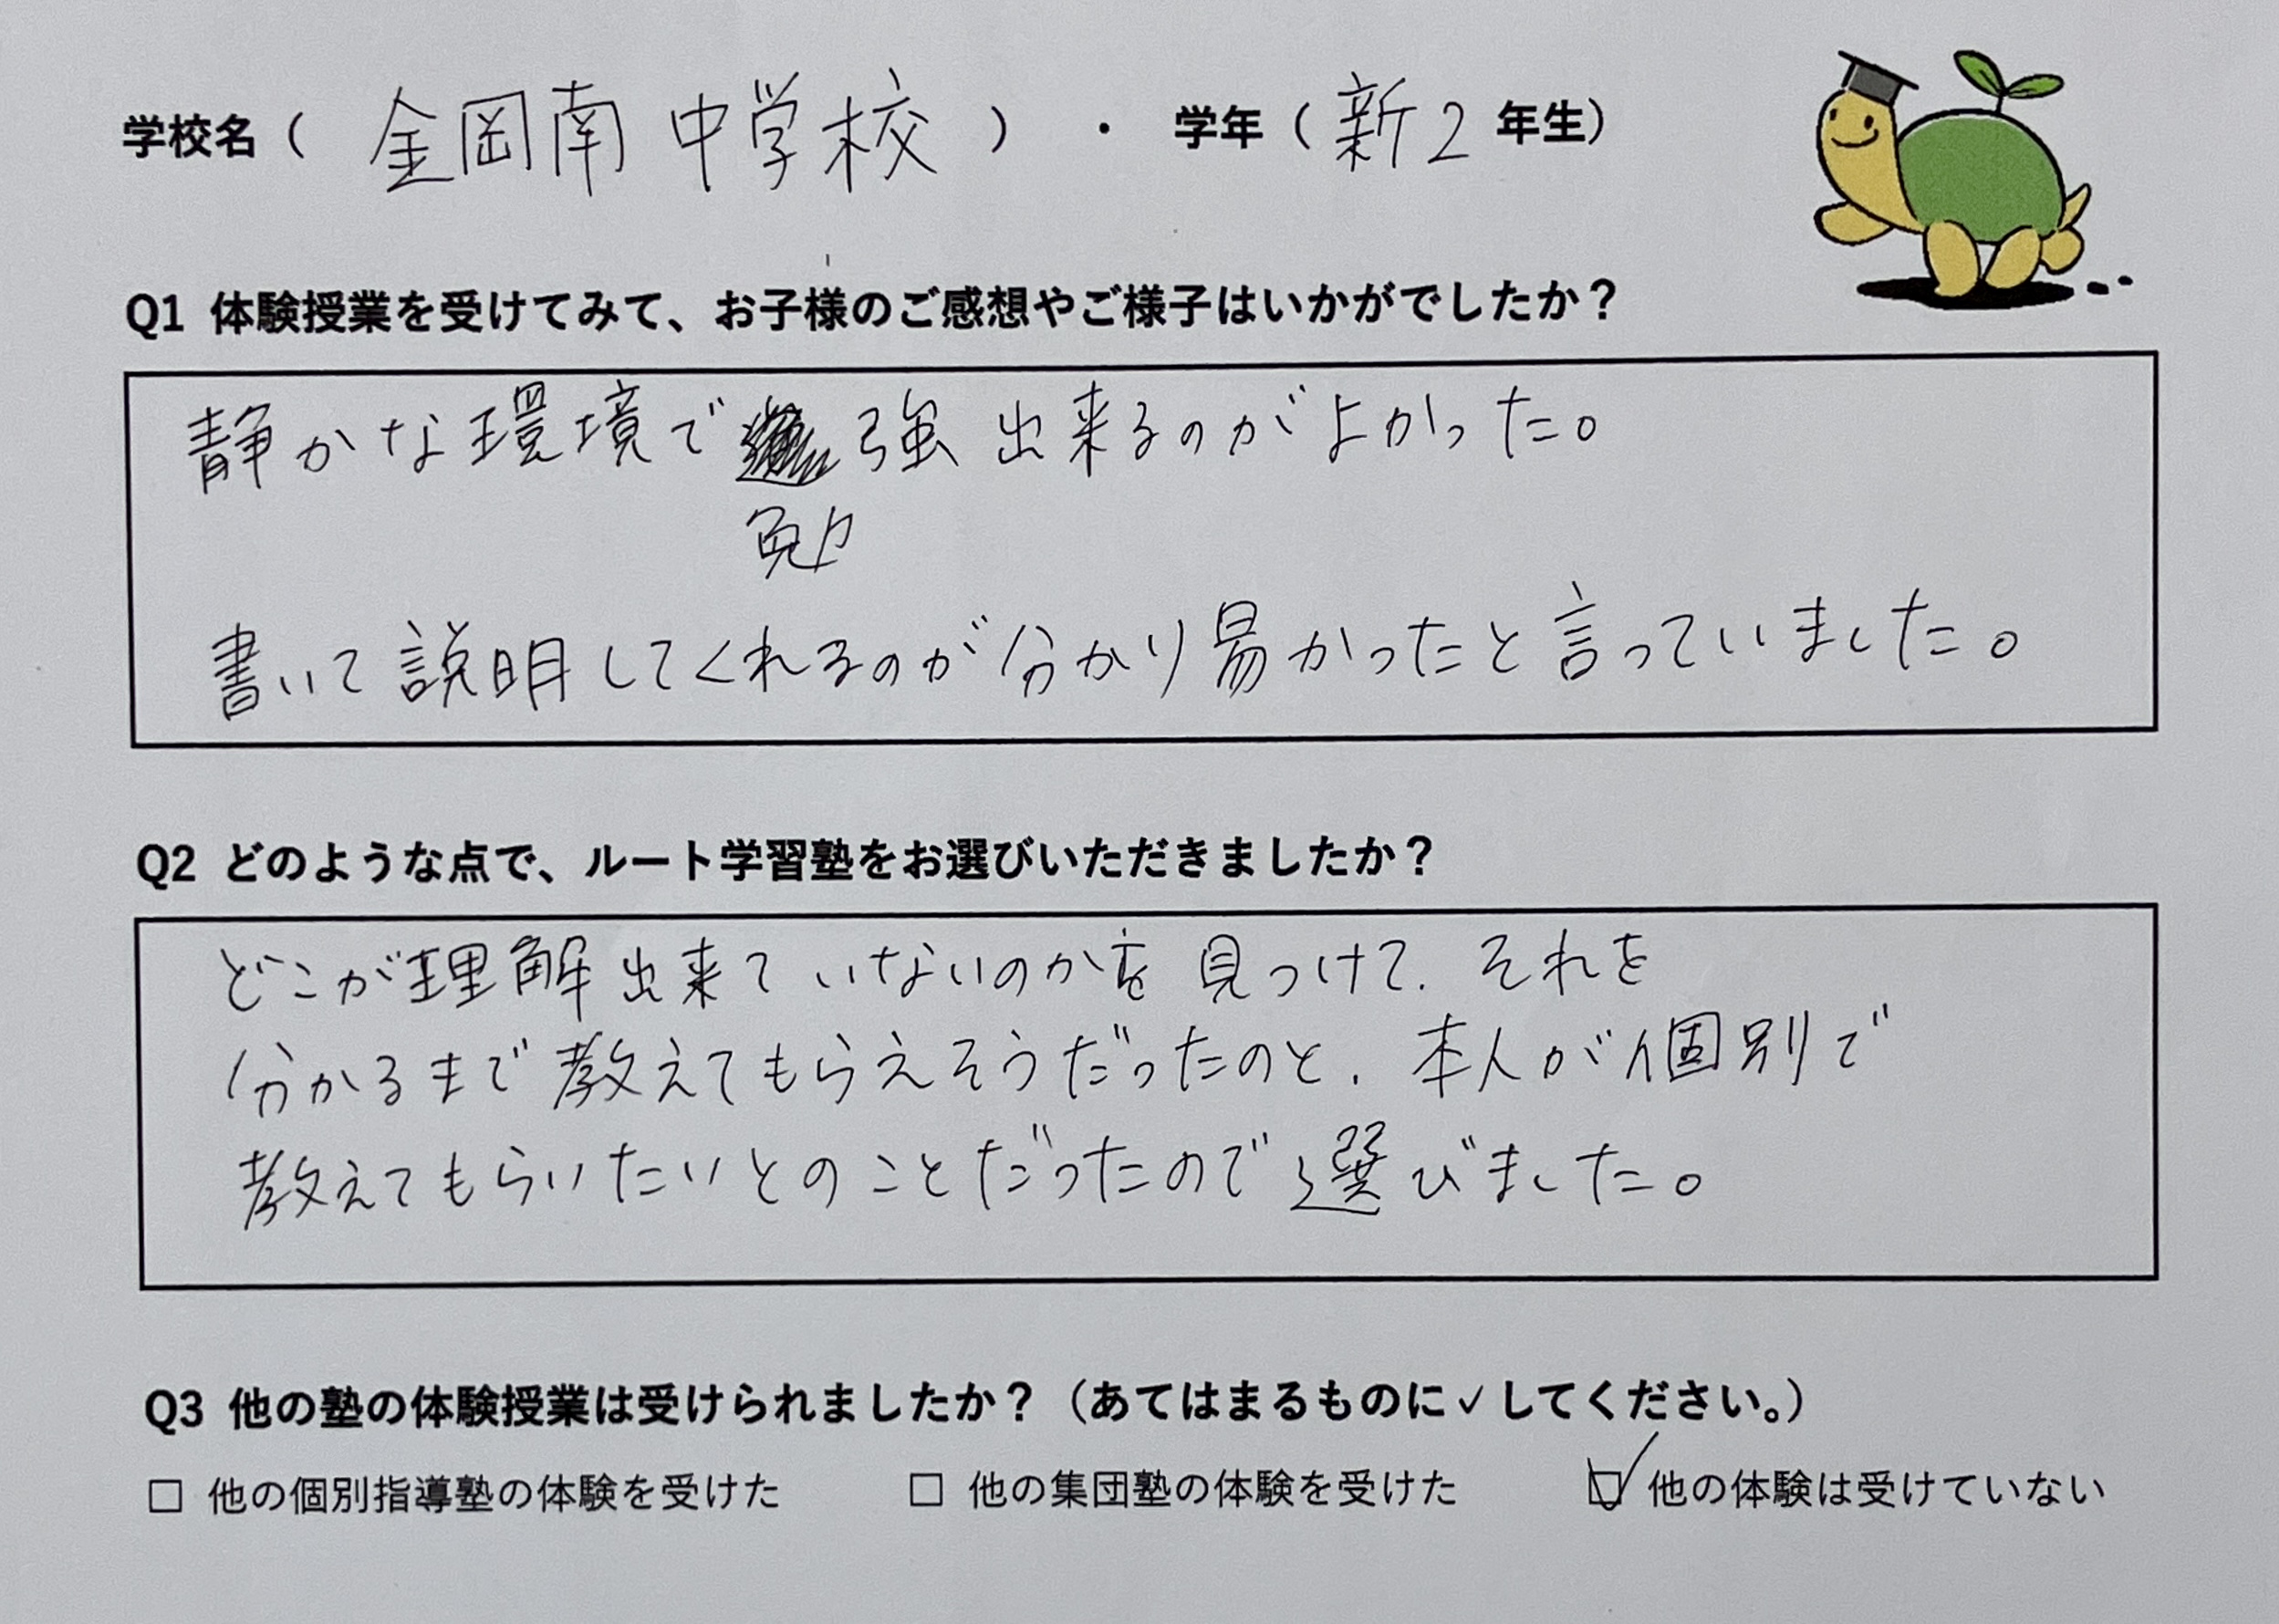 学校名（ 金岡南中学校 ）・ 学年（新2年生）
Q1 体験授業を受けてみて、お子様のご感想やご様子はいかがでしたか？
静かな環境で強出来るのがよかった。
勉
書いて説明してくれるのが分かり易かったと言っていました。
Q2 どのような点で、ルート学習塾をお選びいただきましたか？
どこが理解出来ていないのかを見つけて、それを
分かるまで教えてもらえそうだったのと、本人が個別で
教えてもらいたいとのことだったので選びました。
Q3 他の塾の体験授業は受けられましたか？（あてはまるものに✓してください。）
□ 他の個別指導塾の体験を受けた □ 他の集団塾の体験を受けた ☑ 他の体験は受けていない